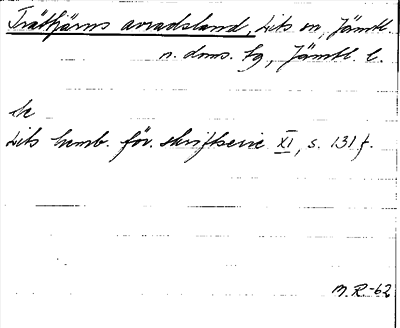 Trättjärns avradsland, Lits sn, Jämtl.
n. doms. tg, Jämtl. l.
Lits hemb. för. skriftserie XI, s. 131 f.
M.R-62